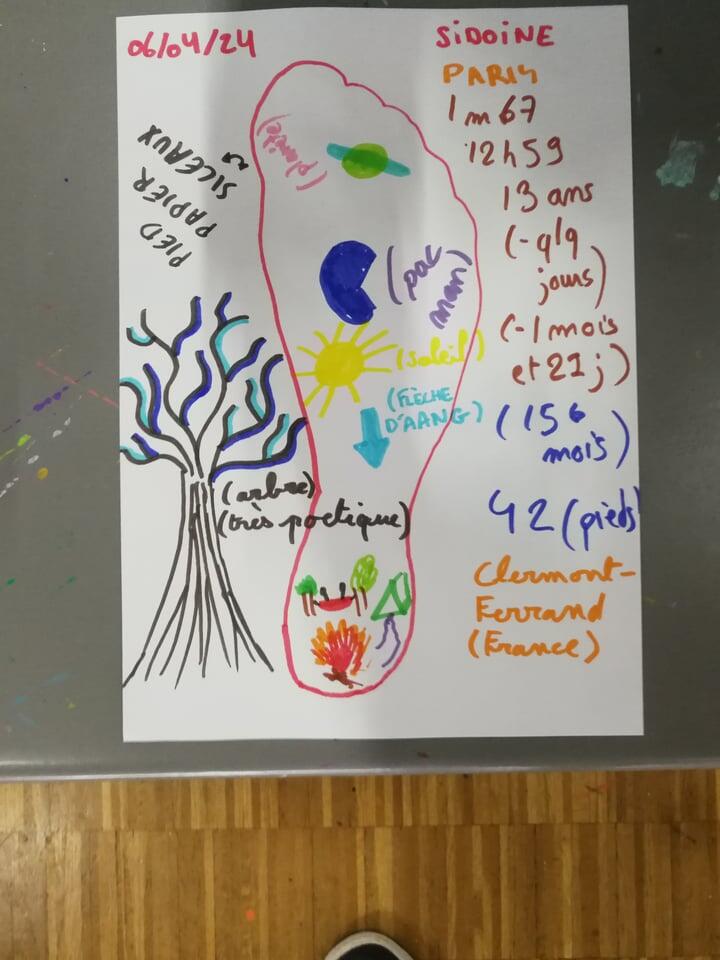 06/04/24
SIDOINE
PARIS
1m67
12h59
13 ans
(-9/9
jours)
(-1 mois
et 21j)
(156
mois)
42 (pieds
Clermont-
Ferrand
(France)
PIED
PAPIER
SICEAUX
(planète)
(pac
man)
(soleil)
(FLÈCHE
D'AANG)
(arbre)
(très poetique)